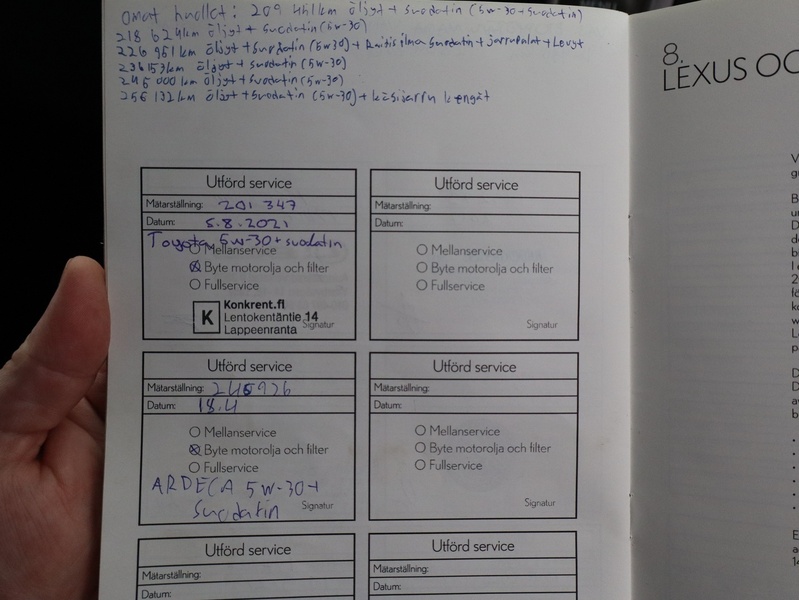 omat huollot: 209 461km öljyt + suodatin (5w-30+suodatin)
218 624km öljyt + suodatin (5w-30)
226 951km öljyt + suodatin (5w30) + Raitisilma suodatin + jarrupalat + Levyt
236153km öljyt + suodatin (5w-30)
245 000km öljyt + suodatin (5w-30)
256 132km öljyt + suodatin (5w-30) + käsijarru kengät
Utförd service
Mätarställning: 201 347
Datum: 5.8.2021
Toyota 5w-30+suodatin
Mellanservice
Byte motorolja och filter
Fullservice
K
Konkrent.fi
Lentokentäntie 14
Lappeenranta
Signatur
Utförd service
Mätarställning:
Datum:
Mellanservice
Byte motorolja och filter
Fullservice
Signatur
Utförd service
Mätarställning:
Datum: 18.4
Mellanservice
Byte motorolja och filter
Fullservice
ARDECA 5w-30+
Suodatin
Signatur
Utförd service
Mätarställning:
Datum:
Mellanservice
Byte motorolja och filter
Fullservice
Signatur
Utförd service
Mätarställning:
Datum:
Utförd service
Mätarställning:
Datum:
8.
LEXUS OC